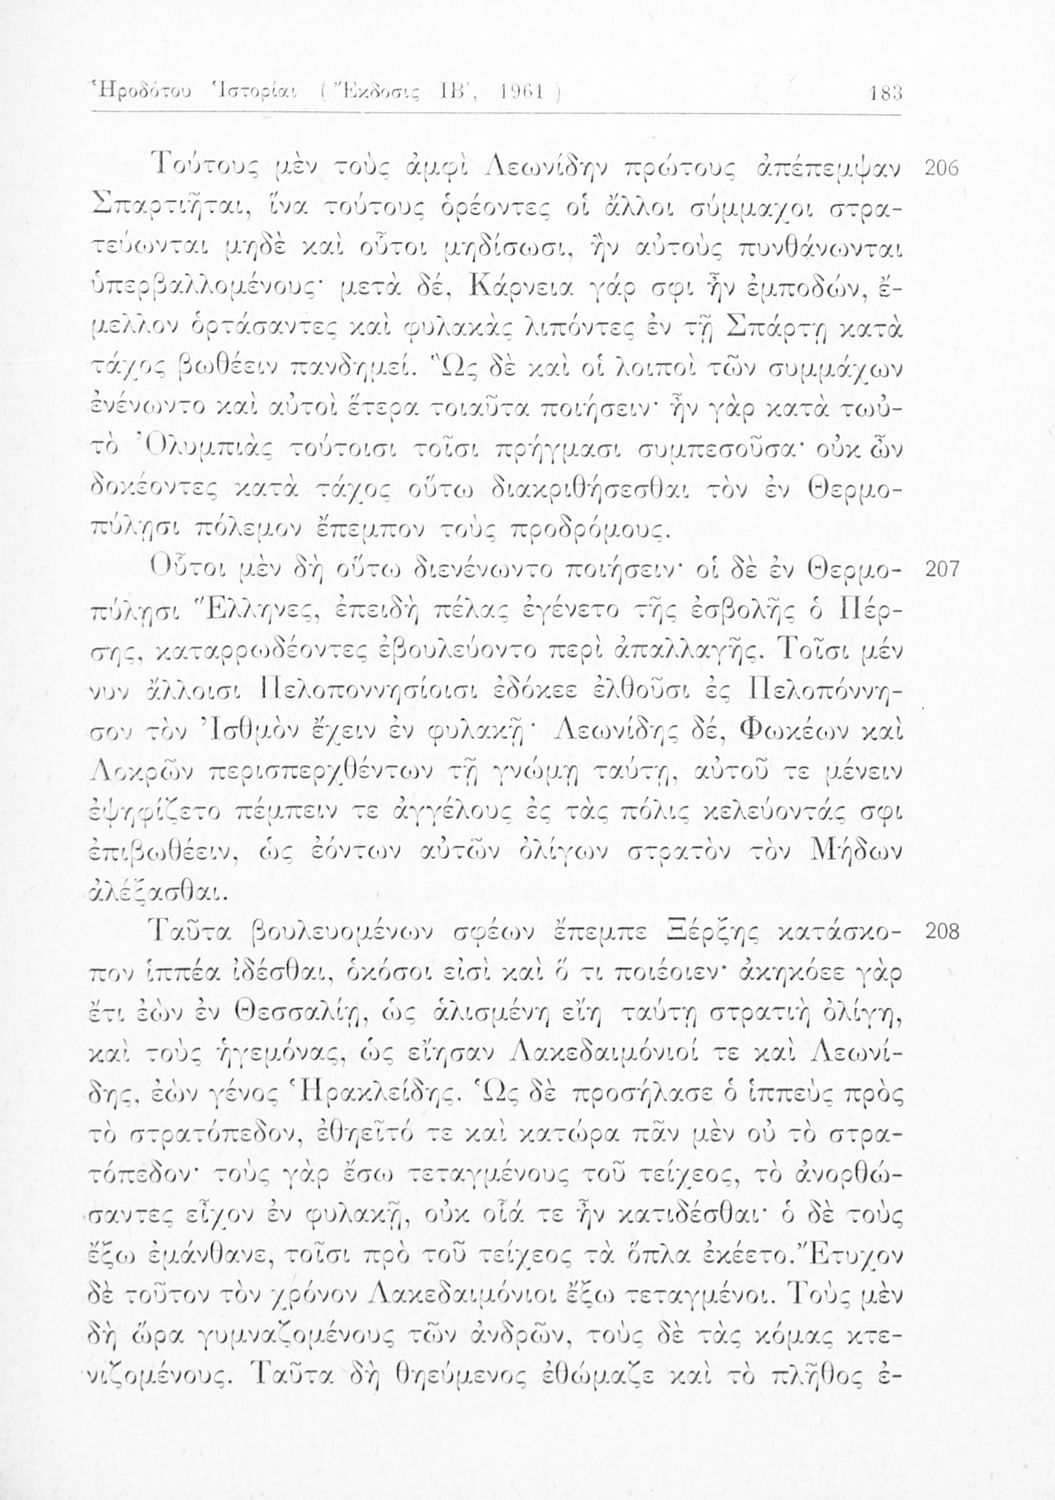 Ἡροδότου Ἱστορίαι (Ἔκδοσις ΙΒ΄, 1961) 183
Τούτους μὲν τοὺς ἀμφὶ Λεωνίδην πρώτους ἀπέπεμψαν 206
Σπαρτιῆται, ἵνα τούτους ὁρέοντες οἱ ἄλλοι σύμμαχοι στρα-
τεύωνται μηδὲ καὶ οὗτοι μηδίσωσι, ἢν αὐτοὺς πυνθάνωνται
ὑπερβαλλομένους· μετὰ δέ, Κάρνεια γάρ σφι ἦν ἐμποδών, ἔ-
μελλον ὁρτάσαντες καὶ φυλακὰς λιπόντες ἐν τῇ Σπάρτῃ κατὰ
τάχος βωθέειν πανδημεί. Ὣς δὲ καὶ οἱ λοιποὶ τῶν συμμάχων
ἐνένωντο καὶ αὐτοὶ ἕτερα τοιαῦτα ποιήσειν· ἦν γὰρ κατὰ τωὐ-
τὸ Ὀλυμπιὰς τούτοισι τοῖσι πρήγμασι συμπεσοῦσα· οὐκ ὦν
δοκέοντες κατὰ τάχος οὕτω διακριθήσεσθαι τὸν ἐν Θερμο-
πύλῃσι πόλεμον ἔπεμπον τοὺς προδρόμους.
Οὗτοι μὲν δὴ οὕτω διενένωντο ποιήσειν· οἱ δὲ ἐν Θερμο- 207
πύλῃσι Ἕλληνες, ἐπειδὴ πέλας ἐγένετο τῆς ἐσβολῆς ὁ Πέρ-
σης, καταρρωδέοντες ἐβουλεύοντο περὶ ἀπαλλαγῆς. Τοῖσι μέν
νυν ἄλλοισι Πελοποννησίοισι ἐδόκεε ἐλθοῦσι ἐς Πελοπόννη-
σον τὸν Ἰσθμὸν ἔχειν ἐν φυλακῇ· Λεωνίδης δέ, Φωκέων καὶ
Λοκρῶν περισπερχθέντων τῇ γνώμῃ ταύτῃ, αὐτοῦ τε μένειν
ἐψηφίζετο πέμπειν τε ἀγγέλους ἐς τὰς πόλις κελεύοντάς σφι
ἐπιβωθέειν, ὡς ἐόντων αὐτῶν ὀλίγων στρατὸν τὸν Μήδων
ἀλέξασθαι.
Ταῦτα βουλευομένων σφέων ἔπεμπε Ξέρξης κατάσκο- 208
πον ἱππέα ἰδέσθαι, ὁκόσοι εἰσὶ καὶ ὅ τι ποιέοιεν· ἀκηκόεε γὰρ
ἔτι ἐὼν ἐν Θεσσαλίῃ, ὡς ἁλισμένη εἴη ταύτῃ στρατιὴ ὀλίγη,
καὶ τοὺς ἡγεμόνας, ὡς εἴησαν Λακεδαιμόνιοί τε καὶ Λεωνί-
δης, ἐὼν γένος Ἡρακλείδης. Ὡς δὲ προσήλασε ὁ ἱππεὺς πρὸς
τὸ στρατόπεδον, ἐθηεῖτό τε καὶ κατώρα πᾶν μὲν οὐ τὸ στρα-
τόπεδον· τοὺς γὰρ ἔσω τεταγμένους τοῦ τείχεος, τὸ ἀνορθώ-
σαντες εἶχον ἐν φυλακῇ, οὐκ οἷά τε ἦν κατιδέσθαι· ὁ δὲ τοὺς
ἔξω ἐμάνθανε, τοῖσι πρὸ τοῦ τείχεος τὰ ὅπλα ἐκέετο. Ἔτυχον
δὲ τοῦτον τὸν χρόνον Λακεδαιμόνιοι ἔξω τεταγμένοι. Τοὺς μὲν
δὴ ὥρα γυμναζομένους τῶν ἀνδρῶν, τοὺς δὲ τὰς κόμας κτε-
νιζομένους. Ταῦτα δὴ θηεύμενος ἐθώμαζε καὶ τὸ πλῆθος ἐ-